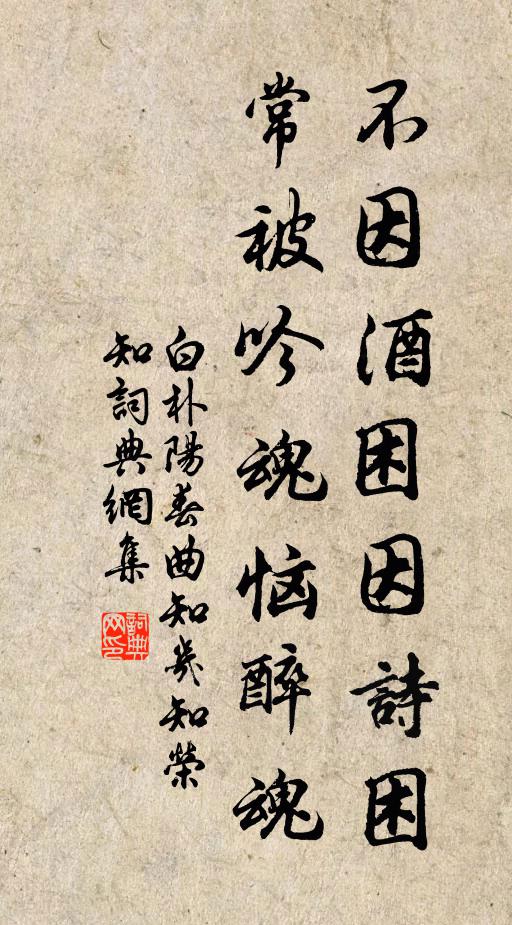 不因酒困因詩困
常被吟魂恼醉魂
白朴陽春曲知幾知榮
知詞典網集
詞典网印